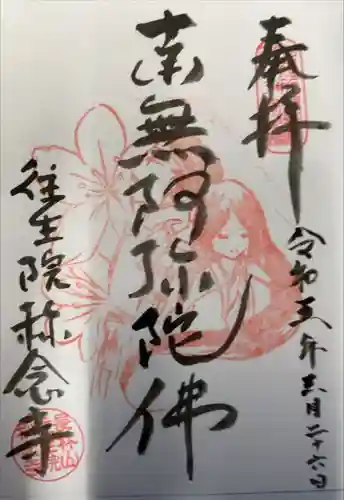 奉拝
令和五年三月二十六日
南無阿弥陀佛
往生院称念寺